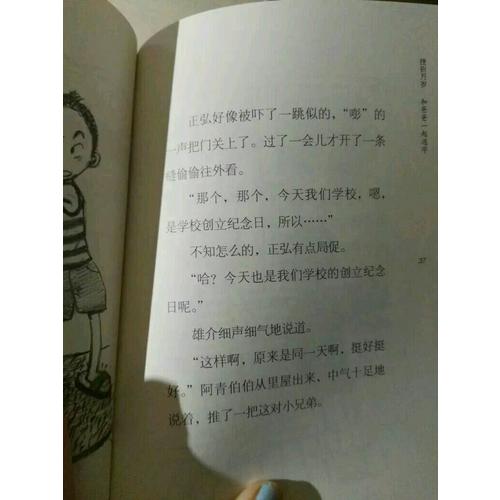 正弘好像被吓了一跳似的，“嘭”的
一声把门关上了。过了一会儿才开了一条
缝偷偷往外看。
“那个，那个，今天我们学校，嗯，
是学校创立纪念日，所以……”
不知怎么的，正弘有点局促。
“哈？今天也是我们学校的创立纪念
日呢。”
雄介细声细气地说道。
“这样啊，原来是同一天啊，挺好挺
好。”阿青伯伯从里屋出来、中气十足地
说着，推了一把这对小兄弟。
和爸爸一起逃亭
37